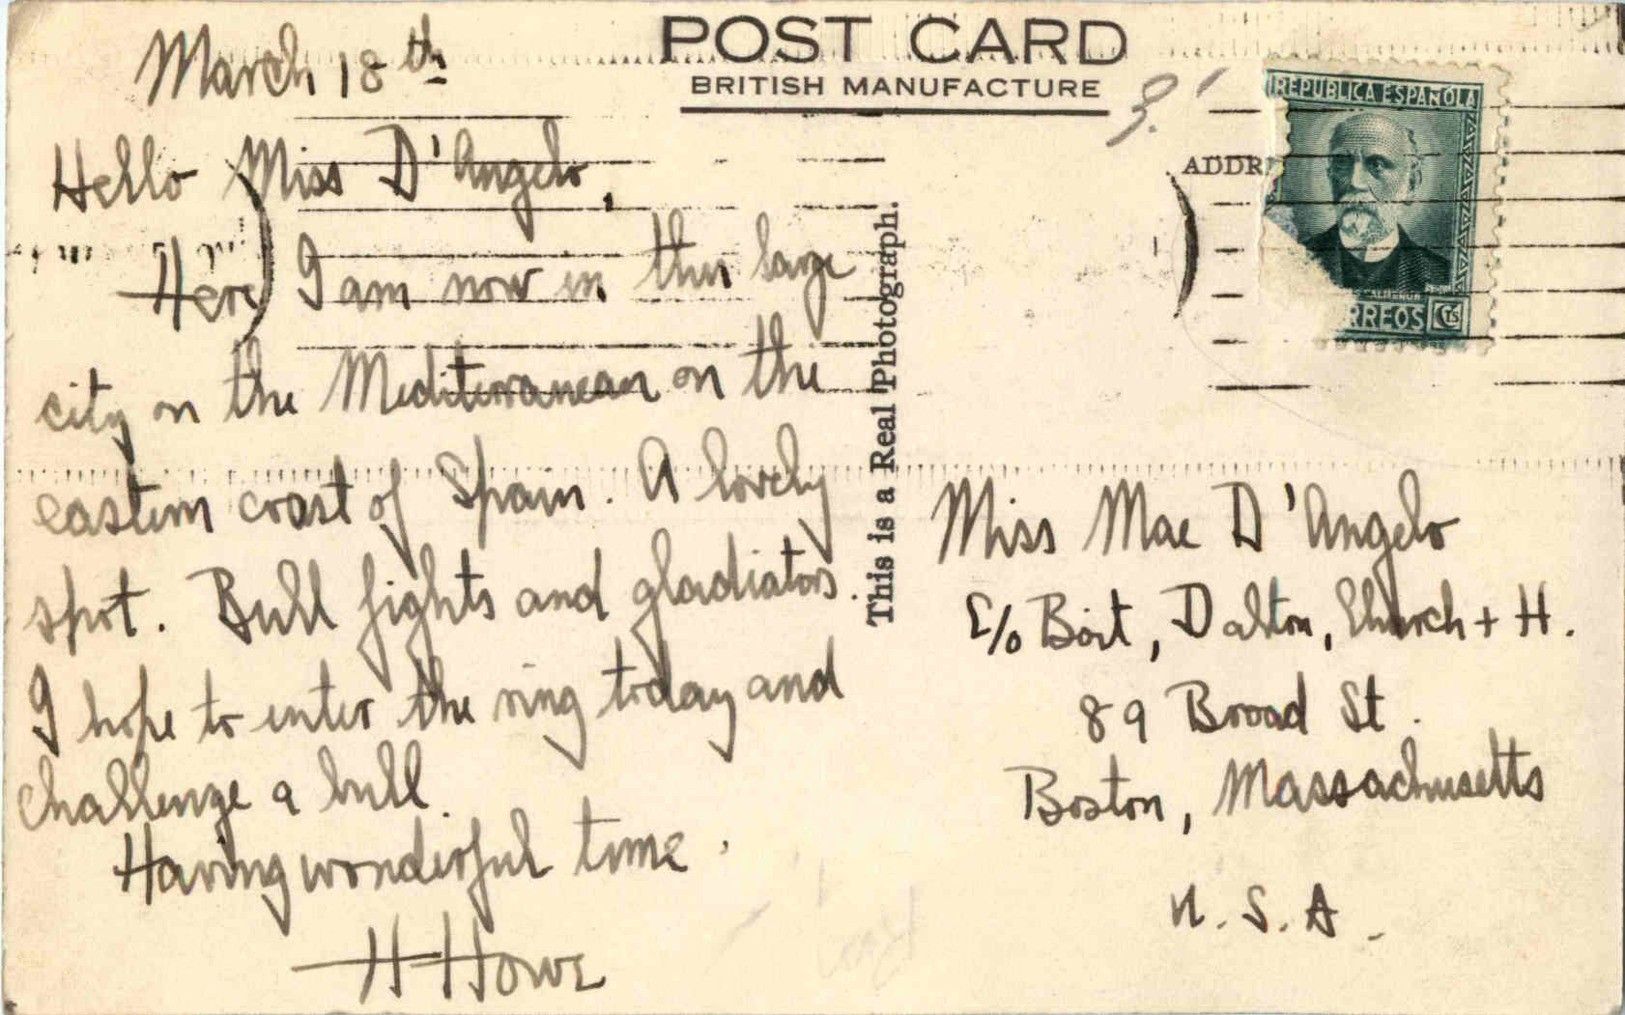 March 18th
Hello Miss D'Angelo,
Here I am now in this large
city on the Mediterranean on the
eastern coast of Spain. A lovely
spot. Bull fights and gladiators.
I hope to enter the ring today and
challenge a bull.
Having wonderful time.
H Howe
POST CARD
BRITISH MANUFACTURE
This is a Real Photograph.
ADDR
REPUBLICA ESPAÑOLA
RREOS CTS
Miss Mae D'Angelo
c/o Boit, Dalton, Church + H.
89 Broad St.
Boston, Massachusetts
U.S.A.